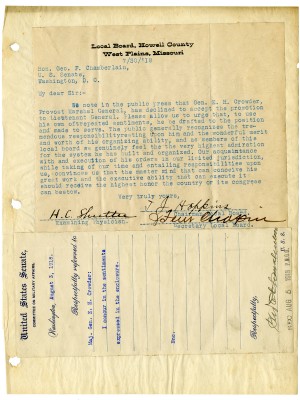 Local Board, Howell County
West Plains, Missouri
7/30/'18
Hon. Geo. F. Chamberlain,
U. S. Senate,
Washington, D. C.
My dear Sir:-
We note in the public press that Gen. E. H. Crowder,
Provost Marshal General, has declined to accept the promotion
to Lieutenant General. Please allow us to urge that, to use
his own attempted sentiments, he be drafted to the position
and made to serve. The public generally recognizes the tre-
mendous responsibility resting upon him and the wonderful merit
and worth of his organizing ability, and as members of this
local board we genuinely feel that the very highest admiration
for the system he has built and organized. Our acquaintance
with and execution of his orders in our limited jurisdiction,
while taking of our time and entailing responsibilities upon
us, convinces us that the master mind that can conduct this
great work and the executive ability that can execute it
should receive the highest honor the country or its congress
can bestow.
Very truly yours,
T. J. Hopkins
H. C. Shuttee
Examining Physician
Secretary Local Board.
United States Senate,
COMMITTEE ON MILITARY AFFAIRS.
Washington, August 3, 1918.
Respectfully referred to
Maj. Gen. E. H. Crowder:
I concur in the sentiments
expressed in the enclosure.
Enc.
Respectfully,
U. S. S.